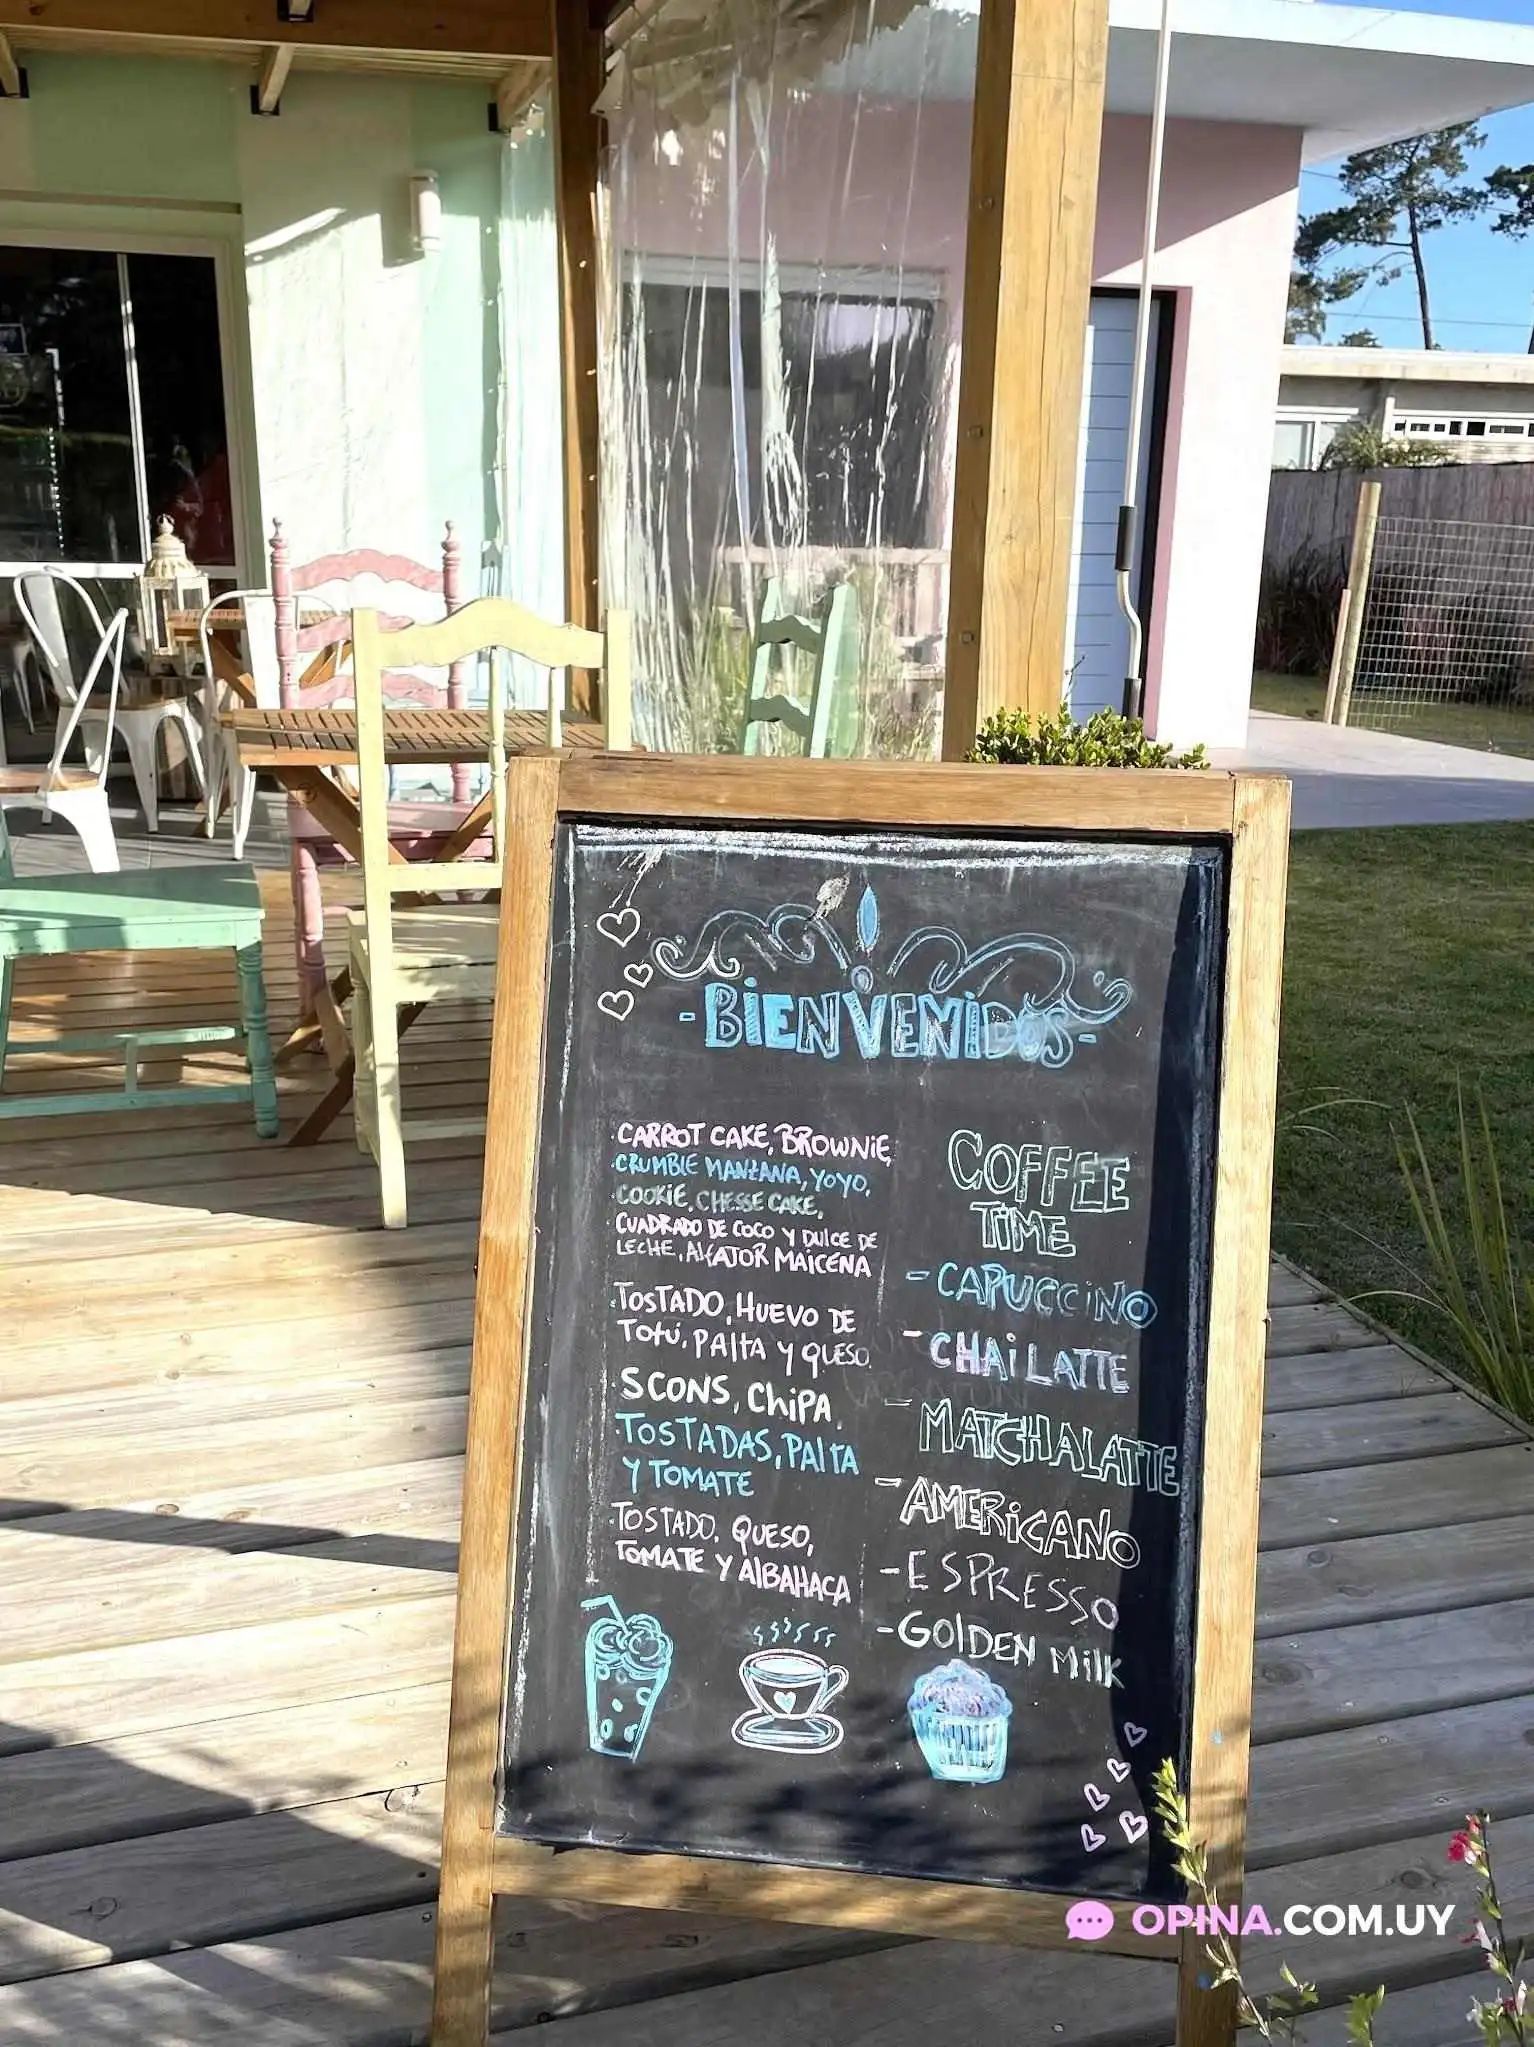 -BIENVENIDOS-
CARROT CAKE, BROWNIE,
CRUMBLE MANZANA, YOYO,
COOKIE, CHESSE CAKE,
CUADRADO DE COCO Y DULCE DE
LECHE, ALFAJOR MAICENA
TOSTADO, HUEVO DE
TOFU, PALTA Y QUESO
SCONS, CHIPA,
TOSTADAS, PALTA
Y TOMATE
TOSTADO, QUESO,
TOMATE Y ALBAHACA
COFFEE
TIME
- CAPUCCINO
- CHAI LATTE
- MATCHALATTE
- AMERICANO
- ESPRESSO
- GOLDEN MILK
OPINA.COM.UY